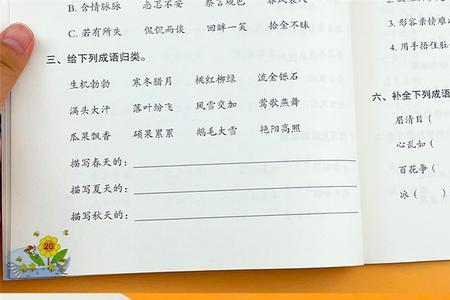 B. 含情脉脉 忐忑不安 察言观色
C. 若有所失 侃侃而谈 回眸一笑 拾金不昧
三、给下列成语归类。
生机勃勃 寒冬腊月 桃红柳绿 流金铄石
满头大汗 落叶纷飞 风雪交加 莺歌燕舞
瓜果飘香 硕果累累 鹅毛大雪 艳阳高照
描写春天的:
描写夏天的:
描写秋天的:
20
3. 形容亲情难
4. 用手捂住肚
六、补全下列成语
眉清目(
心乱如(
百花争(
冰( )